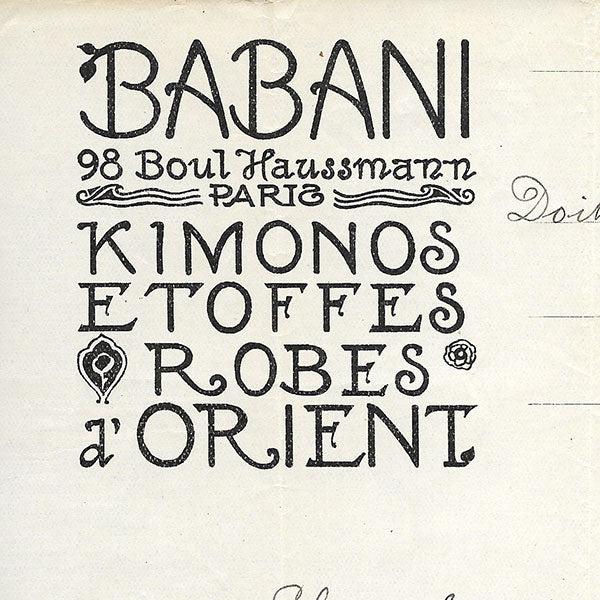 BABANI
98 Boul Haussmann
PARIS
KIMONOS
ETOFFES
ROBES
d'ORIENT